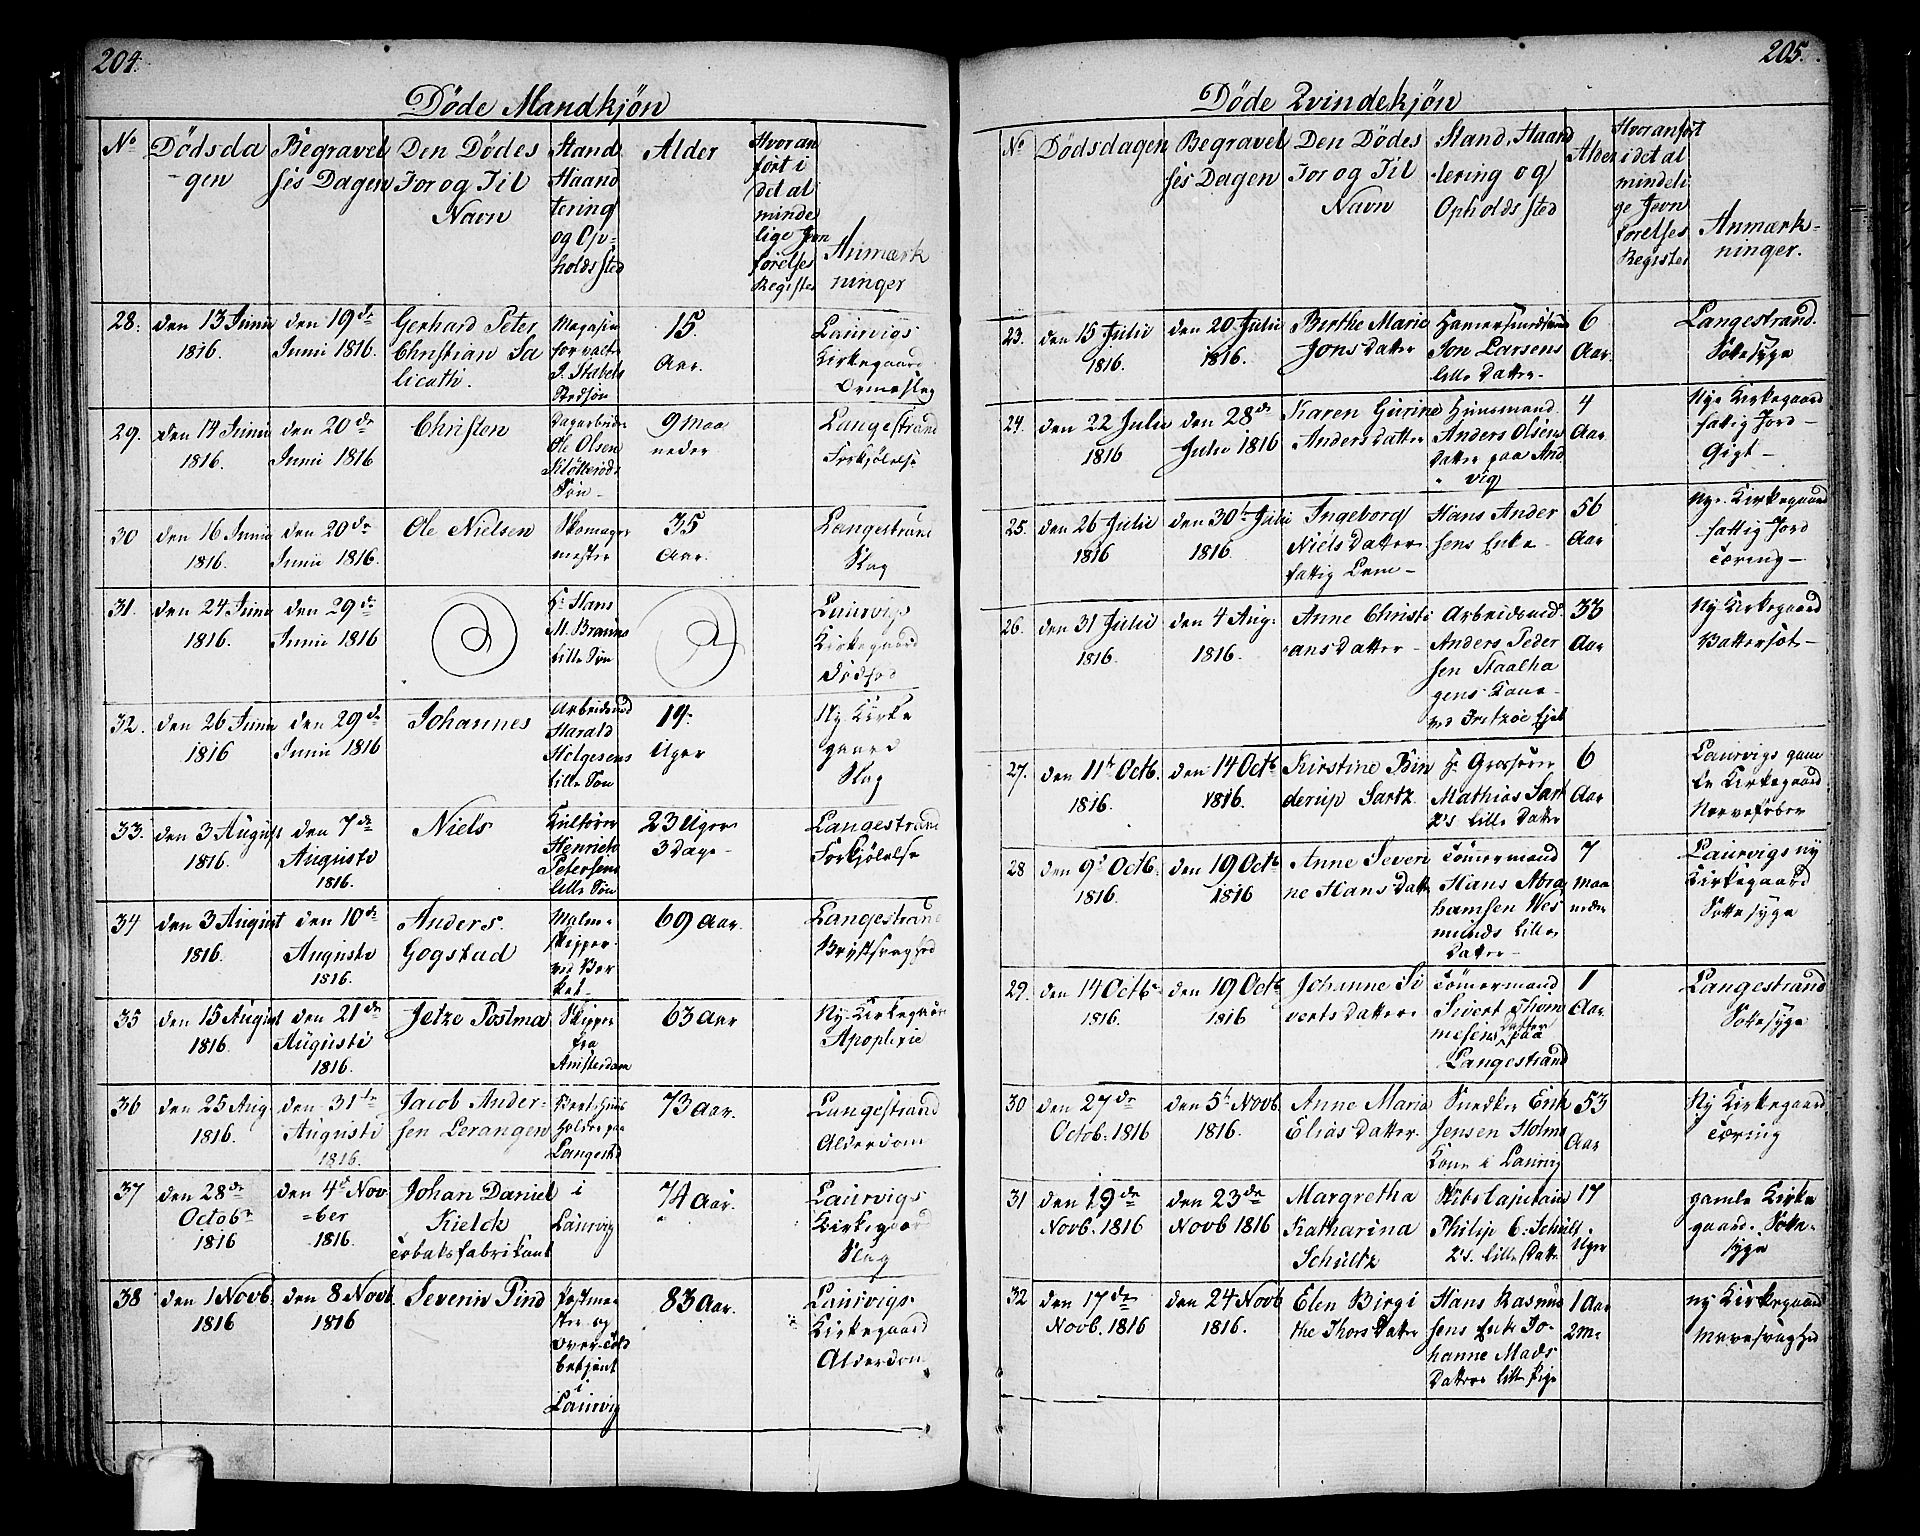 204.
Døde Mandkjøn
No
Dødsda
-gen
Begravel
ses Dagen
Den Dødes
For og Til
Navn
Stand
Haand
tering
og Op-
holdssted
Alder
Hvor an
ført i
det al
minde
lige Jevn
førelses
Register
Anmærk
ninger
28.
den 13 Junii
1816.
den 19de
Junii 1816.
Gerhard Peter
Christian Sa
licath.
Magasin
forvalter
15.
Aar.
Laurvigs
Kirkegaard
29.
den 14 Junii
1816.
den 20de
Junii 1816
Christen
Dagarbeider
Ole Olsen
Søn-
9 maa
neder
Langestrand
Forkjølelse
30
den 16 Junii
1816.
den 20de
Junii 1816.
Ole Nielsen
Skomager
mester
35
Aar.
Langestrand
Slag
31.
den 24 Junii
1816.
den 29de
Junii 1816
Hr Hans
M. Bruuns
lille Søn
Laurvigs
Kirkegaard
Dødfød
32.
den 26 Junii
1816
den 29de
Junii 1816
Johannes
Arbeidsmd
Harald
Helgesens
lille Søn
19.
Uger
Ny Kirke
gaard
Slag
33.
den 3 August
1816.
den 7de
Augusti
1816.
Niels
Henrich
Petersens
lille Søn
23 Uger
3 Dage-
Langestrand
Forkjølelse
34
den 3 August
1816.
den 10de
Augusti
1816.
Anders
Gogstad
Malm-
skipper
69 Aar.
Langestrand
Brystsvaghed
35
den 15 August
1816.
den 21de
Augusti
1816.
Jetze Postma
Skipper
fra
Amsterdam
63 Aar
Ny Kirkegaard
Apoplexie
36
den 25 Aug
1816.
den 31te
Augusti
1816.
Jacob Ander-
sen Lerangen
Langestd
73 Aar.
Langestrand
Alderdom
37
den 28de
Octobr
1816
den 4de Nov
=ber
1816.
Johan Daniel
Kielck
Tobaksfabrikant
i
Laurvig
74 Aar.
Laurvigs
Kirkegaard
Slag
38
den 1 Novb.
1816
den 8 Novb.
1816
Severin Pind
Postme-
ster og
Over-Told
betjent
i
Laurvig
83 Aar.
Laurvigs
Kirkegaard
Alderdom
205.
Døde Qvindekjøn
No
Dødsdagen
Begravel
ses Dagen
Den Dødes
For og Til
Navn
Stand, Haand
tering og
Opholdssted
Alder
Hvor anført
i det al
mindeli
ge Jevn
førelses
Register
Anmærk-
ninger.
23.
den 15 Julii
1816.
den 20. Julii
1816.
Berthe Marie
Jons Datter
Jon Larsens
lille Datter-
6
Aar.
Langestrand.
Sottesyge
24.
den 22 Julii
1816
den 28de
Julii 1816
Karen Gurine
Anders Datter
Huusmand
Anders Olsens
Datter paa And
vig
4
Aar.
Nye Kirkegaard
fattig Jord-
Gigt-
25.
den 26 Julii
1816
den 30te Julii
1816.
Ingeborg
Niels Datter
fattig Lem-
Hans Ander
sens Enke-
56
Aar
Nye Kirkegaard
fattig Jord
Tæring-
26.
den 31 Julii
1816.
den 4 Aug.
1816.
Anne Christi
ans Datter-
Arbeidsmd.
Anders Peder
sen Staalha
gens Kone-
ved Fritzøe
33
Aar
Ny Kirkegaard
Vattersot-
27.
den 11te Octb.
1816.
den 14 Octb
1816.
Kirstine Bin
derup Sartz.
Hr Grosserer
Mathias Sart
z's lille Datter
6
Aar
Laurvigs gam
le Kirkegaard
Nervefeber
28
den 9de Octb.
1816.
den 19 Octb
1816
Anne Severi
ne Hans Datter
Tømermand
Hans Abra
hamsen Wes
munds lille
Datter-
7
maa
neder
Laurvigs ny
Kirkegaard
Sottesyge
29.
den 14 Octbr
1816.
den 19 Octb
1816
Johanne Si
verts Datter
Tømermand
Sivert Thom
mesens Datter paa
Langestrand
1
Aar.
Langestrand
Sottesyge
30
den 27de
Octob. 1816
den 5te Novb.
1816.
Anne Maria
Elias Datter.
Snedker Erik
Jensen Holms
Kone i Laurvig
53
Aar
Ny Kirkegaard
Tæring
31
den 19de
Novb. 1816
den 23de
Novb 1816
Margretha
Katharina
Schultz
Skibs Capitain
Philip C. Schult
z's lille Datter
17
Uger
gamle Kirke
gaard. Sotte-
syge
32
den 17de
Novb. 1816
den 24 Novb
1816.
Elen Birgi
the Thors Datter
Hans Rasmu
sens Enke Jo-
hanne Mads
Datters lille Pige
1 Aar
2 m.
ny Kirkegaard